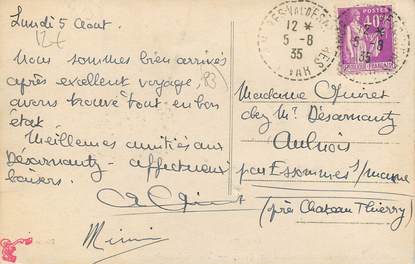 Lundi 5 Aout.
12+
Nous sommes bien arrivés
après excellent voyage,
avons trouvé tout en bon
état
Meilleures amitiés aux
Désarnautz - affectueux
baisers.
Mimi
83
12 *
5 - 8
35
POSTES
40c
Madame
chez Mr Désarnautz
Aulnois
par Essommes s/marne
(près Chateau Thierry)